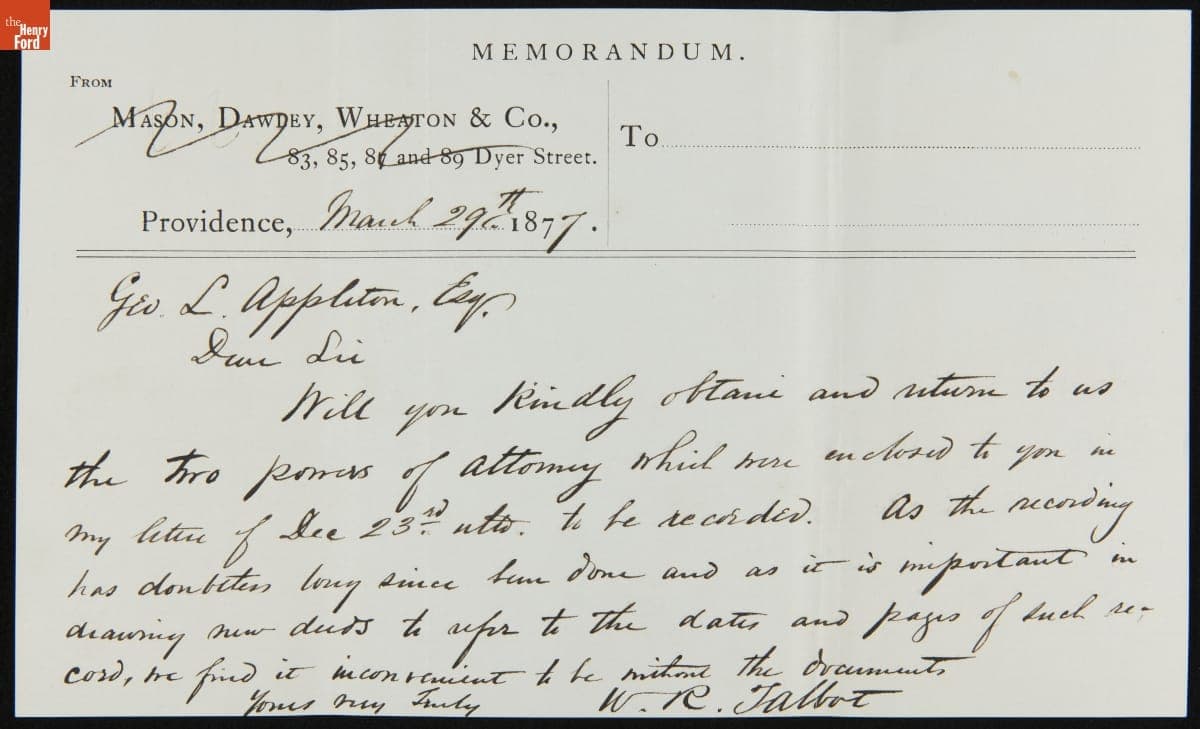 the Henry Ford
MEMORANDUM.
FROM
MASON, DAWLEY, WHEATON & CO.,
83, 85, 87 and 89 Dyer Street.
To
Providence, March 29th 1877.
Geo. L. Appleton, Esq.
Dear Sir
Will you kindly obtain and return to us
the two powers of attorney which were enclosed to you in
my letter of Dec 23rd ulto. to be recorded. As the recording
has doubtless long since been done and as it is important in
drawing new deeds to refer to the dates and pages of such re-
cord, we find it inconvenient to be without the documents
Yours very Truly W. R. Talbot